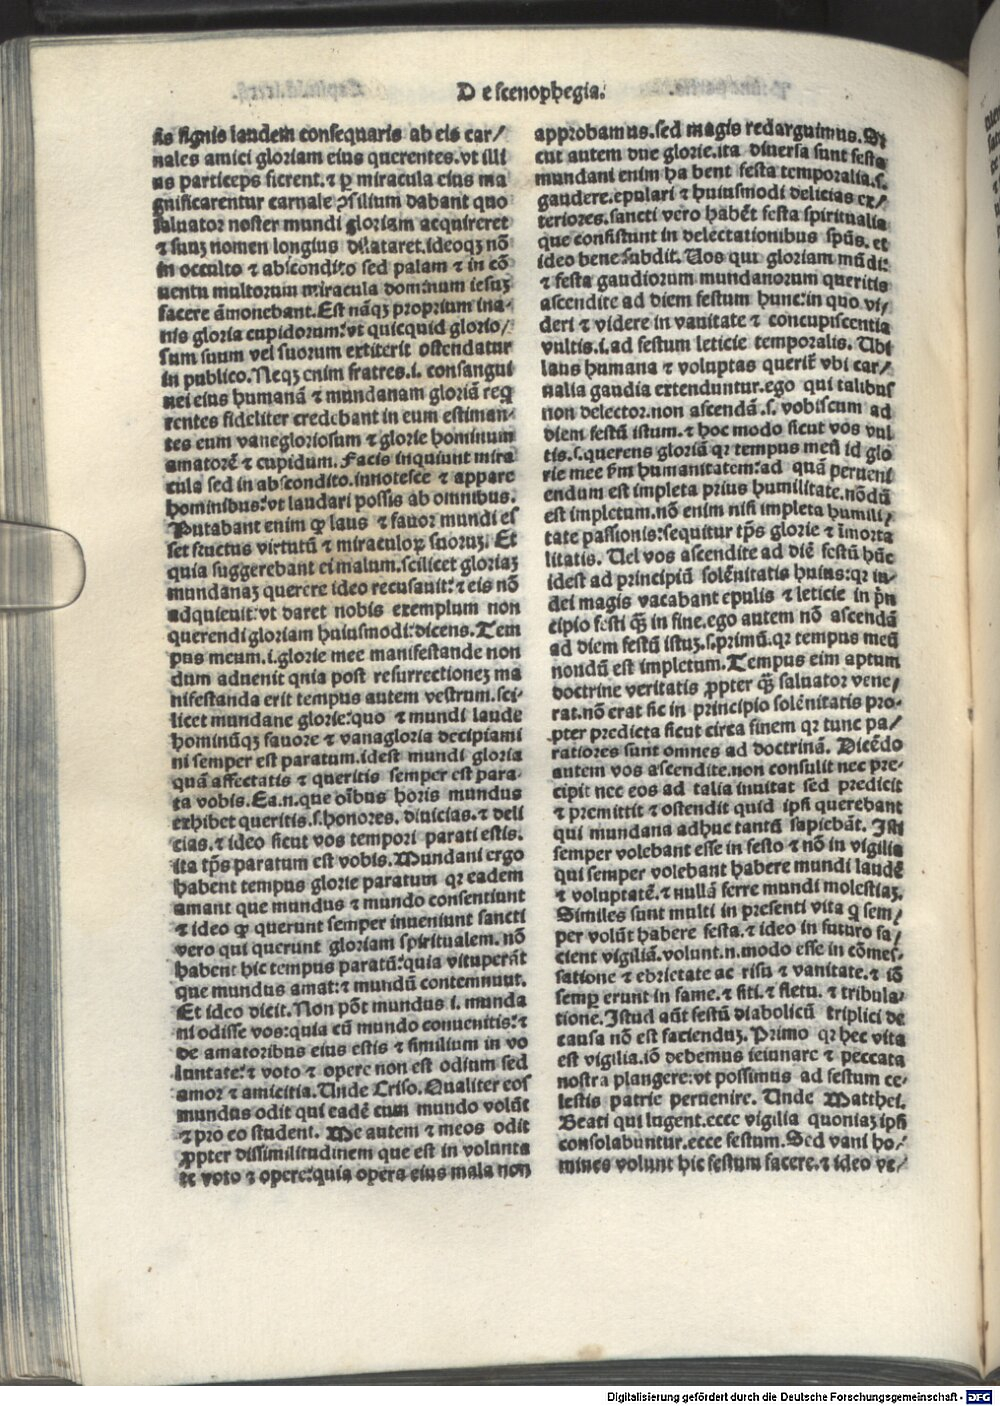 De scenophegia.
n̄s signis laudem consequaris ab eis car/
nales amici gloriam eius querentes. vt illi
us particeps fierent. ⁊ ꝑ miracula eius ma
gnificarentur carnale ꝯsilium dabant quo
saluator noster mundi gloriam acquireret
⁊ suuꝫ nomen longius dilataret. ideoqꝫ nō
in occulto ⁊ abscondito sed palam ⁊ in cō
uentu multorum miracula dominum iesuꝫ
facere āmonebant. Est nāqꝫ proprium ina-
nis gloria cupidorum: vt quicquid glorio/
sum suum vel suorum extiterit ostendatur
in publico. Neqꝫ enim fratres .i. consangui
nei eius humanā ⁊ mundanam gloriā req
rentes fideliter credebant in eum estiman-
tes eum vanegloriosum ⁊ glorie hominum
amatorē ⁊ cupidum. Facis inquiunt mira
cula sed in abscondito. innotesce ⁊ appare
hominibus: vt laudari possis ab omnibus.
Putabant enim ꝙ laus ⁊ fauor mundi es
set fructus virtutū ⁊ miraculoꝝ suoruꝫ. Et
quia suggerebant ei malum. scilicet gloriaꝫ
mundanaꝫ querere ideo recusauit: ⁊ eis nō
adquieuit: vt daret nobis exemplum non
querendi gloriam huiusmodi: dicens. Tem
pus meum .i. glorie mee manifestande non
dum aduenit qnia post resurrectioneꝫ ma
nifestanda erit tempus autem vestrum. sci-
licet mundane glorie: quo ⁊ mundi laude
hominūqꝫ fauore ⁊ vanagloria decipiami
ni semper est paratum. idest mundi gloria
quā affectatis ⁊ queritis semper est para-
ta vobis. Ea .n. que oībus horis mundus
exhibet queritis .s. honores. diuicias. ⁊ deli
cias. ⁊ ideo sicut vos tempori parati estis.
ita tp̄s paratum est vobis. Mundani ergo
habent tempus glorie paratum qꝛ eadem
amant que mundus ⁊ mundo consentiunt
⁊ ideo ꝙ querunt semper inueniunt sancti
vero qui querunt gloriam spiritualem. nō
habent hic tempus paratū: quia vituperāt
que mundus amat: ⁊ mundū contemnunt.
Et ideo dicit. Non pōt mundus .i. munda
ni odisse vos: quia cū mundo conuenitis: ⁊
de amatoribus eius estis ⁊ similium in vo
luntate: ⁊ voto ⁊ opere non est odium sed
amor ⁊ amicitia. Unde Criso. Qualiter eos
mundus odit qui eadē cum mundo volūt
⁊ pro eo student. Me autem ⁊ meos odit
ꝓpter dissimilitudinem que est in volunta
te voto ⁊ opere: quia opera eius mala non
approbamus. sed magis redarguimus. Si
cut autem due glorie. ita diuersa sunt festa
mundani enim ha bent festa temporalia .s.
gaudere. epulari ⁊ huiusmodi delicias ex/
teriores. sancti vero habēt festa spiritualia
que consistunt in delectationibus spūs. et
ideo bene subdit. Uos qui gloriam mūdi:
⁊ festa gaudiorum mundanorum queritis
ascendite ad diem festum hunc: in quo vi/
deri ⁊ videre in vanitate ⁊ concupiscentia
vultis .i. ad festum leticie temporalis. Ubi
laus humana ⁊ voluptas querit̄ vbi car/
nalia gaudia extenduntur. ego qui talibus
non delector. non ascendā .s. vobiscum ad
diem festū istum. ⁊ hoc modo sicut vos vul
tis .s. querens gloriā qꝛ tempus meū id glo
rie mee ẜm humanitatem: ad quā perueni
endum est impleta prius humilitate. nōdū
est impletum. nō enim nisi impleta humili/
tate passionis: sequitur tp̄s glorie ⁊ īmorta
litatis. Uel vos ascendite ad diē festū hūc
idest ad principiū solēnitatis huius: qꝛ iu-
dei magis vacabant epulis ⁊ leticie in pn̄
cipio festi qꝫ̄ in fine. ego autem nō ascendā
ad diem festū istuꝫ .s. primū. qꝛ tempus meū
nondū est impletum. Tempus eim aptum
doctrine veritatis ꝓpter qꝫ̄ saluator vene/
rat. nō erat sic in principio solēnitatis pro-
pter predicta sicut circa finem qꝛ tunc pa/
ratiores sunt omnes ad doctrinā. Dicēdo
autem vos ascendite. non consulit nec pre-
cipit nec eos ad talia inuitat sed predicit
⁊ premittit ⁊ ostendit quid ipsi querebant
qui mundana adhuc tantū sapiebāt. Isti
semper volebant esse in festo ⁊ nō in vigilia
qui semper volebant habere mundi laudē
⁊ voluptatē. ⁊ nullā ferre mundi molestiaꝫ.
Similes sunt multi in presenti vita q̇ sem/
per volūt habere festa. ⁊ ideo in futuro fa/
cient vigiliā. volunt .n. modo esse in cōmes-
satione ⁊ ebrietate ac risu ⁊ vanitate. ⁊ iō
semꝑ erunt in fame. ⁊ siti. ⁊ fletu. ⁊ tribula-
tione. Istud aūt festū diabolicū triplici de
causa nō est faciendus. Primo qꝛ hec vita
est vigilia. iō debemus ieiunare ⁊ peccata
nostra plangere: vt possimus ad festum ce-
lestis patrie peruenire. Unde Matthei.
Beati qui lugent. ecce vigilia quoniaꝫ ipsi
consolabuntur. ecce festum. Sed vani ho/
mines volunt hic festum facere. ⁊ ideo ve/
Digitalisierung gefördert durch die Deutsche Forschungsgemeinschaft - DFG